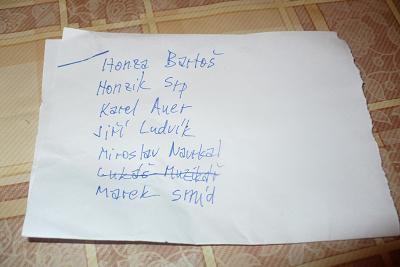 Honza Bartoš
Honzik Srp
Karel Auer
Jiří Ludvík
Miroslav Navrkal
Lukáš Muzikář
Marek Šmíd